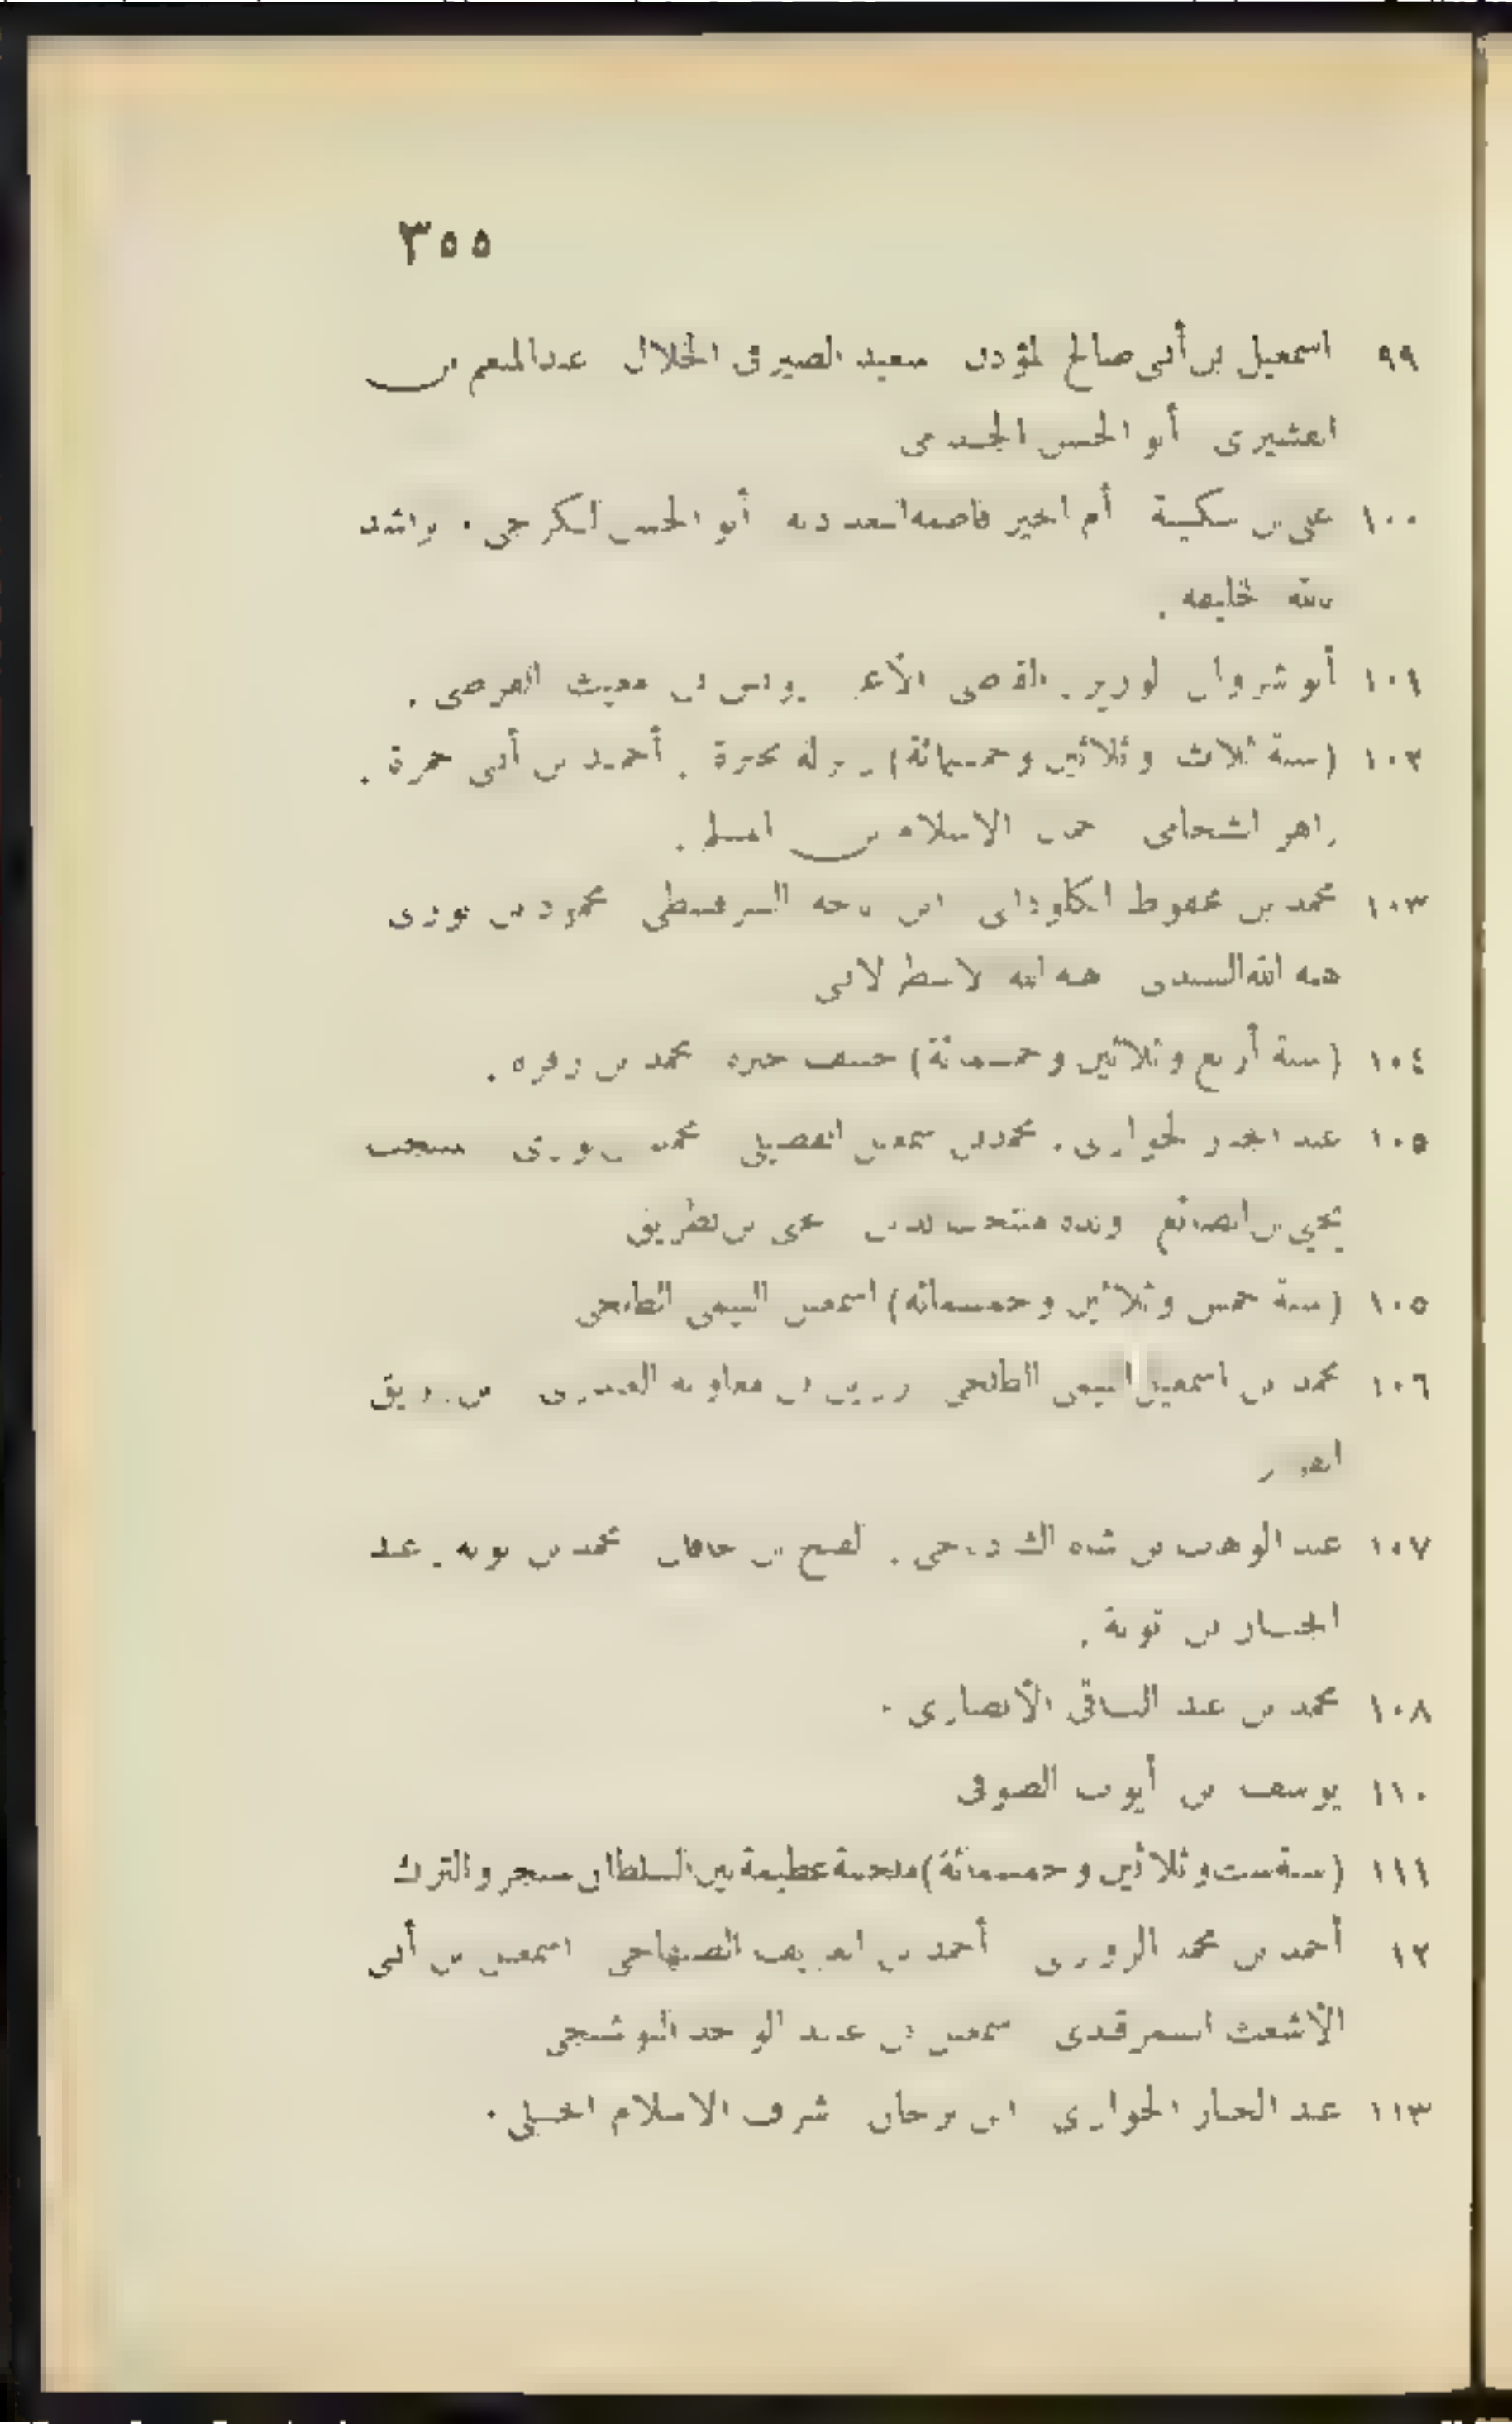 ٣٥٥
٩٩ اسمعيل بن أبى صالح المؤذن سعيد الصيرفى الخلال عبدالمنعم بن
القشيرى أبو الحسن الجذامى
١٠٠ على بن سكينة أم الخير فاطمة البغدادية أبو الحسن الكرجى . الراشد
بالله الخليفة .
١٠١ أنو شروان الوزير . القاضى الأعز يونس بن مغيث القرطبى .
١٠٢ (سنة ثلاث وثلاثين وخمسمائة) زلزلة بحيرة . أحمد بن أبى حمزة .
زاهر الشحامى جمال الاسلام بن المسلم .
١٠٣ محمد بن محفوظ الكلوذانى ابن باجه السرقسطى محمود بن بورى
هبة الله السيدى هبة الله الاسطرلابى
١٠٤ (سنة أربع وثلاثين وخمسمائة) خسف حيزه محمد بن
١٠٥ عبد الجبار الخوارى . محمد بن اسمعيل الفضيلى محمد بن بورى
يحيى بن الصائغ على بن بطريق
١٠٥ (سنة خمس وثلاثين وخمسمائة) اسمعيل التيمى الطلحى
١٠٦ محمد بن اسمعيل التيمى الطلحى رزين بن معاوية العبدرى بن زريق
القزاز
١٠٧ عبد الوهاب بن شاه الشاذياخى . الفتح بن خاقان محمد بن توبة . عبد
الجبار بن توبة .
١٠٨ محمد بن عبد الباقى الأنصارى .
١١٠ يوسف بن أيوب الصوفى
١١١ (سنة ست وثلاثين وخمسمائة) ملحمة عظيمة بين السلطان سنجر والترك
١٢ أحمد بن محمد أحمد بن العريف الصنهاجى اسمعيل بن أبى
الأشعث السمرقندى اسمعيل بن عبد الواحد البوشنجى
١١٣ عبد الجبار الخوارى ابن برجان شرف الاسلام الحنبلى .